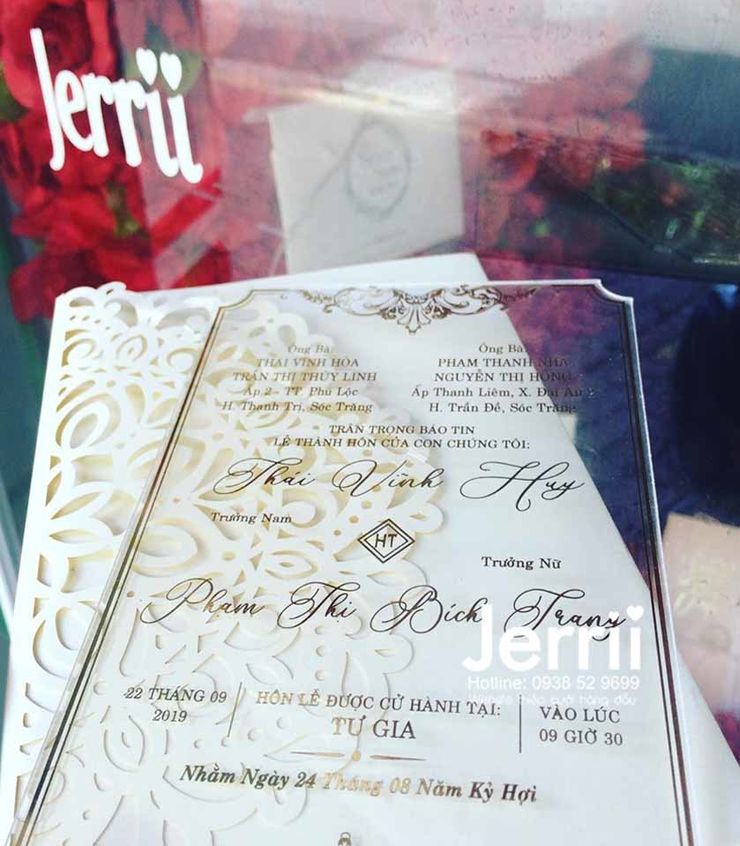 Jerrii
Ông Bà:
THÁI VĨNH HÒA
TRẦN THỊ THÙY LINH
Ấp 2 - TT. Phú Lộc
H. Thạnh Trị, Sóc Trăng
Ông Bà:
PHẠM THANH NHÃ
NGUYỄN THỊ HỒNG
Ấp Thanh Liêm, X. Đại Ân 2
H. Trần Đề, Sóc Trăng
TRÂN TRỌNG BÁO TIN
LỄ THÀNH HÔN CỦA CON CHÚNG TÔI:
Thái Vĩnh Huy
Trưởng Nam
HT
Trưởng Nữ
Phạm Thị Bích Trang
Jerrii
Hotline: 0938 52 9699
Website thiệp cưới hàng đầu
22 THÁNG 09
2019
HÔN LỄ ĐƯỢC CỬ HÀNH TẠI:
TƯ GIA
VÀO LÚC
09 GIỜ 30
Nhằm Ngày 24 Tháng 08 Năm Kỷ Hợi